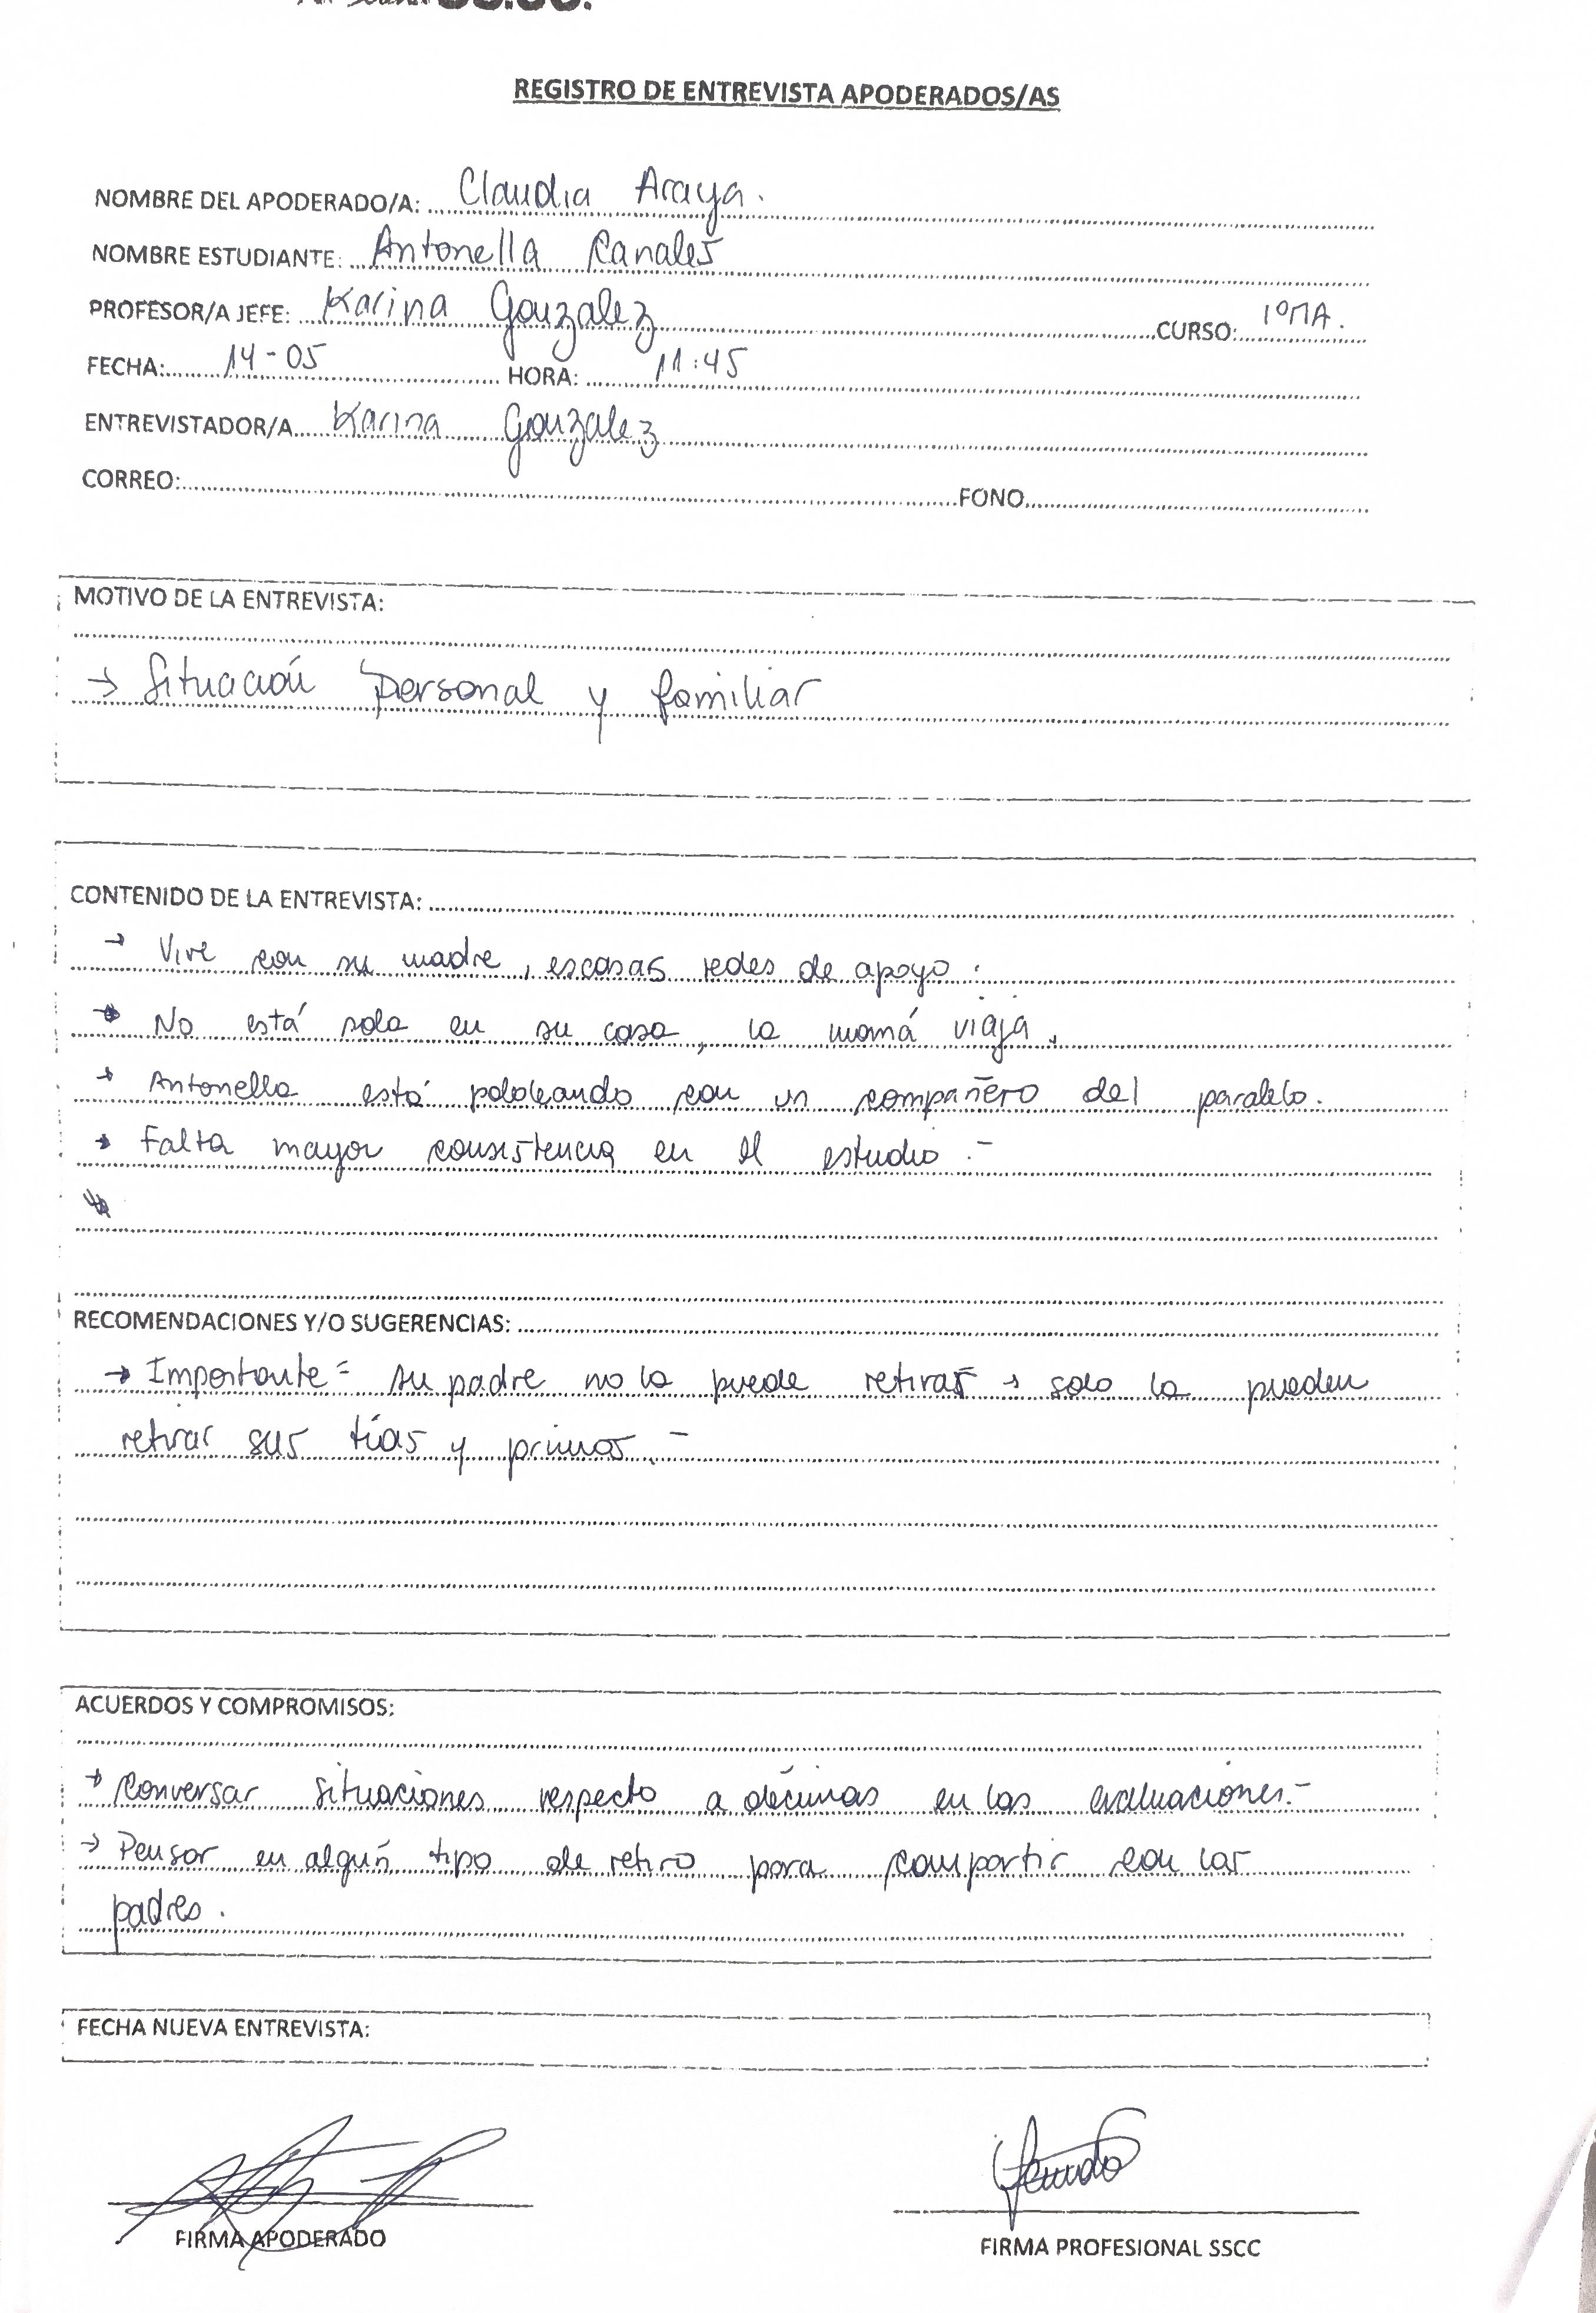 REGISTRO DE ENTREVISTA APODERADOS/AS
NOMBRE DEL APODERADO/A: Claudia Araya.
NOMBRE ESTUDIANTE: Antonella Canales
PROFESOR/A JEFE: Karina Gonzalez CURSO: 1ºMA.
FECHA: 14-05 HORA: 11:45
ENTREVISTADOR/A Karina Gonzalez
CORREO: FONO
MOTIVO DE LA ENTREVISTA:
→ Situación personal y familiar
CONTENIDO DE LA ENTREVISTA:
→ Vive con su madre, escasas redes de apoyo.
→ No está sola en su casa, la mamá viaja.
→ Antonella está pololeando con un compañero del paralelo.
→ Falta mayor consistencia en el estudio.-
RECOMENDACIONES Y/O SUGERENCIAS:
→ Importante = su padre no la puede retirar → solo la pueden
retirar sus tías y primos.-
ACUERDOS Y COMPROMISOS:
→ Conversar situaciones respecto a décimas en las evaluaciones.-
→ Pensar en algún tipo de retiro para compartir con los
padres.
FECHA NUEVA ENTREVISTA:
FIRMA APODERADO
FIRMA PROFESIONAL SSCC